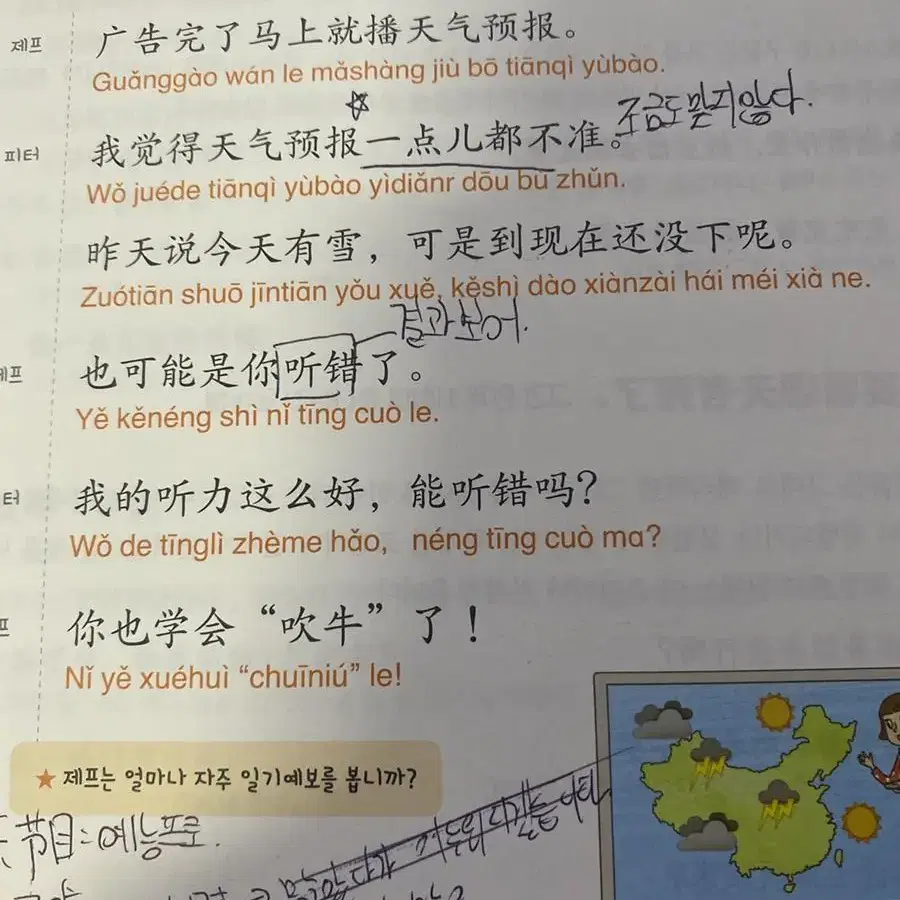 제프 广告完了马上就播天气预报。
Guǎnggào wán le mǎshàng jiù bō tiānqì yùbào.
조금도 맞지 않다.
피터 我觉得天气预报一点儿都不准。
Wǒ juéde tiānqì yùbào yìdiǎnr dōu bù zhǔn.
昨天说今天有雪，可是到现在还没下呢。
Zuótiān shuō jīntiān yǒu xuě, kěshì dào xiànzài hái méi xià ne.
결과보어.
제프 也可能是你听错了。
Yě kěnéng shì nǐ tīng cuò le.
터 我的听力这么好，能听错吗?
Wǒ de tīnglì zhème hǎo, néng tīng cuò ma?
프 你也学会“吹牛”了！
Nǐ yě xuéhuì “chuīniú” le!
★ 제프는 얼마나 자주 일기예보를 봅니까?
节目: 예능프로.